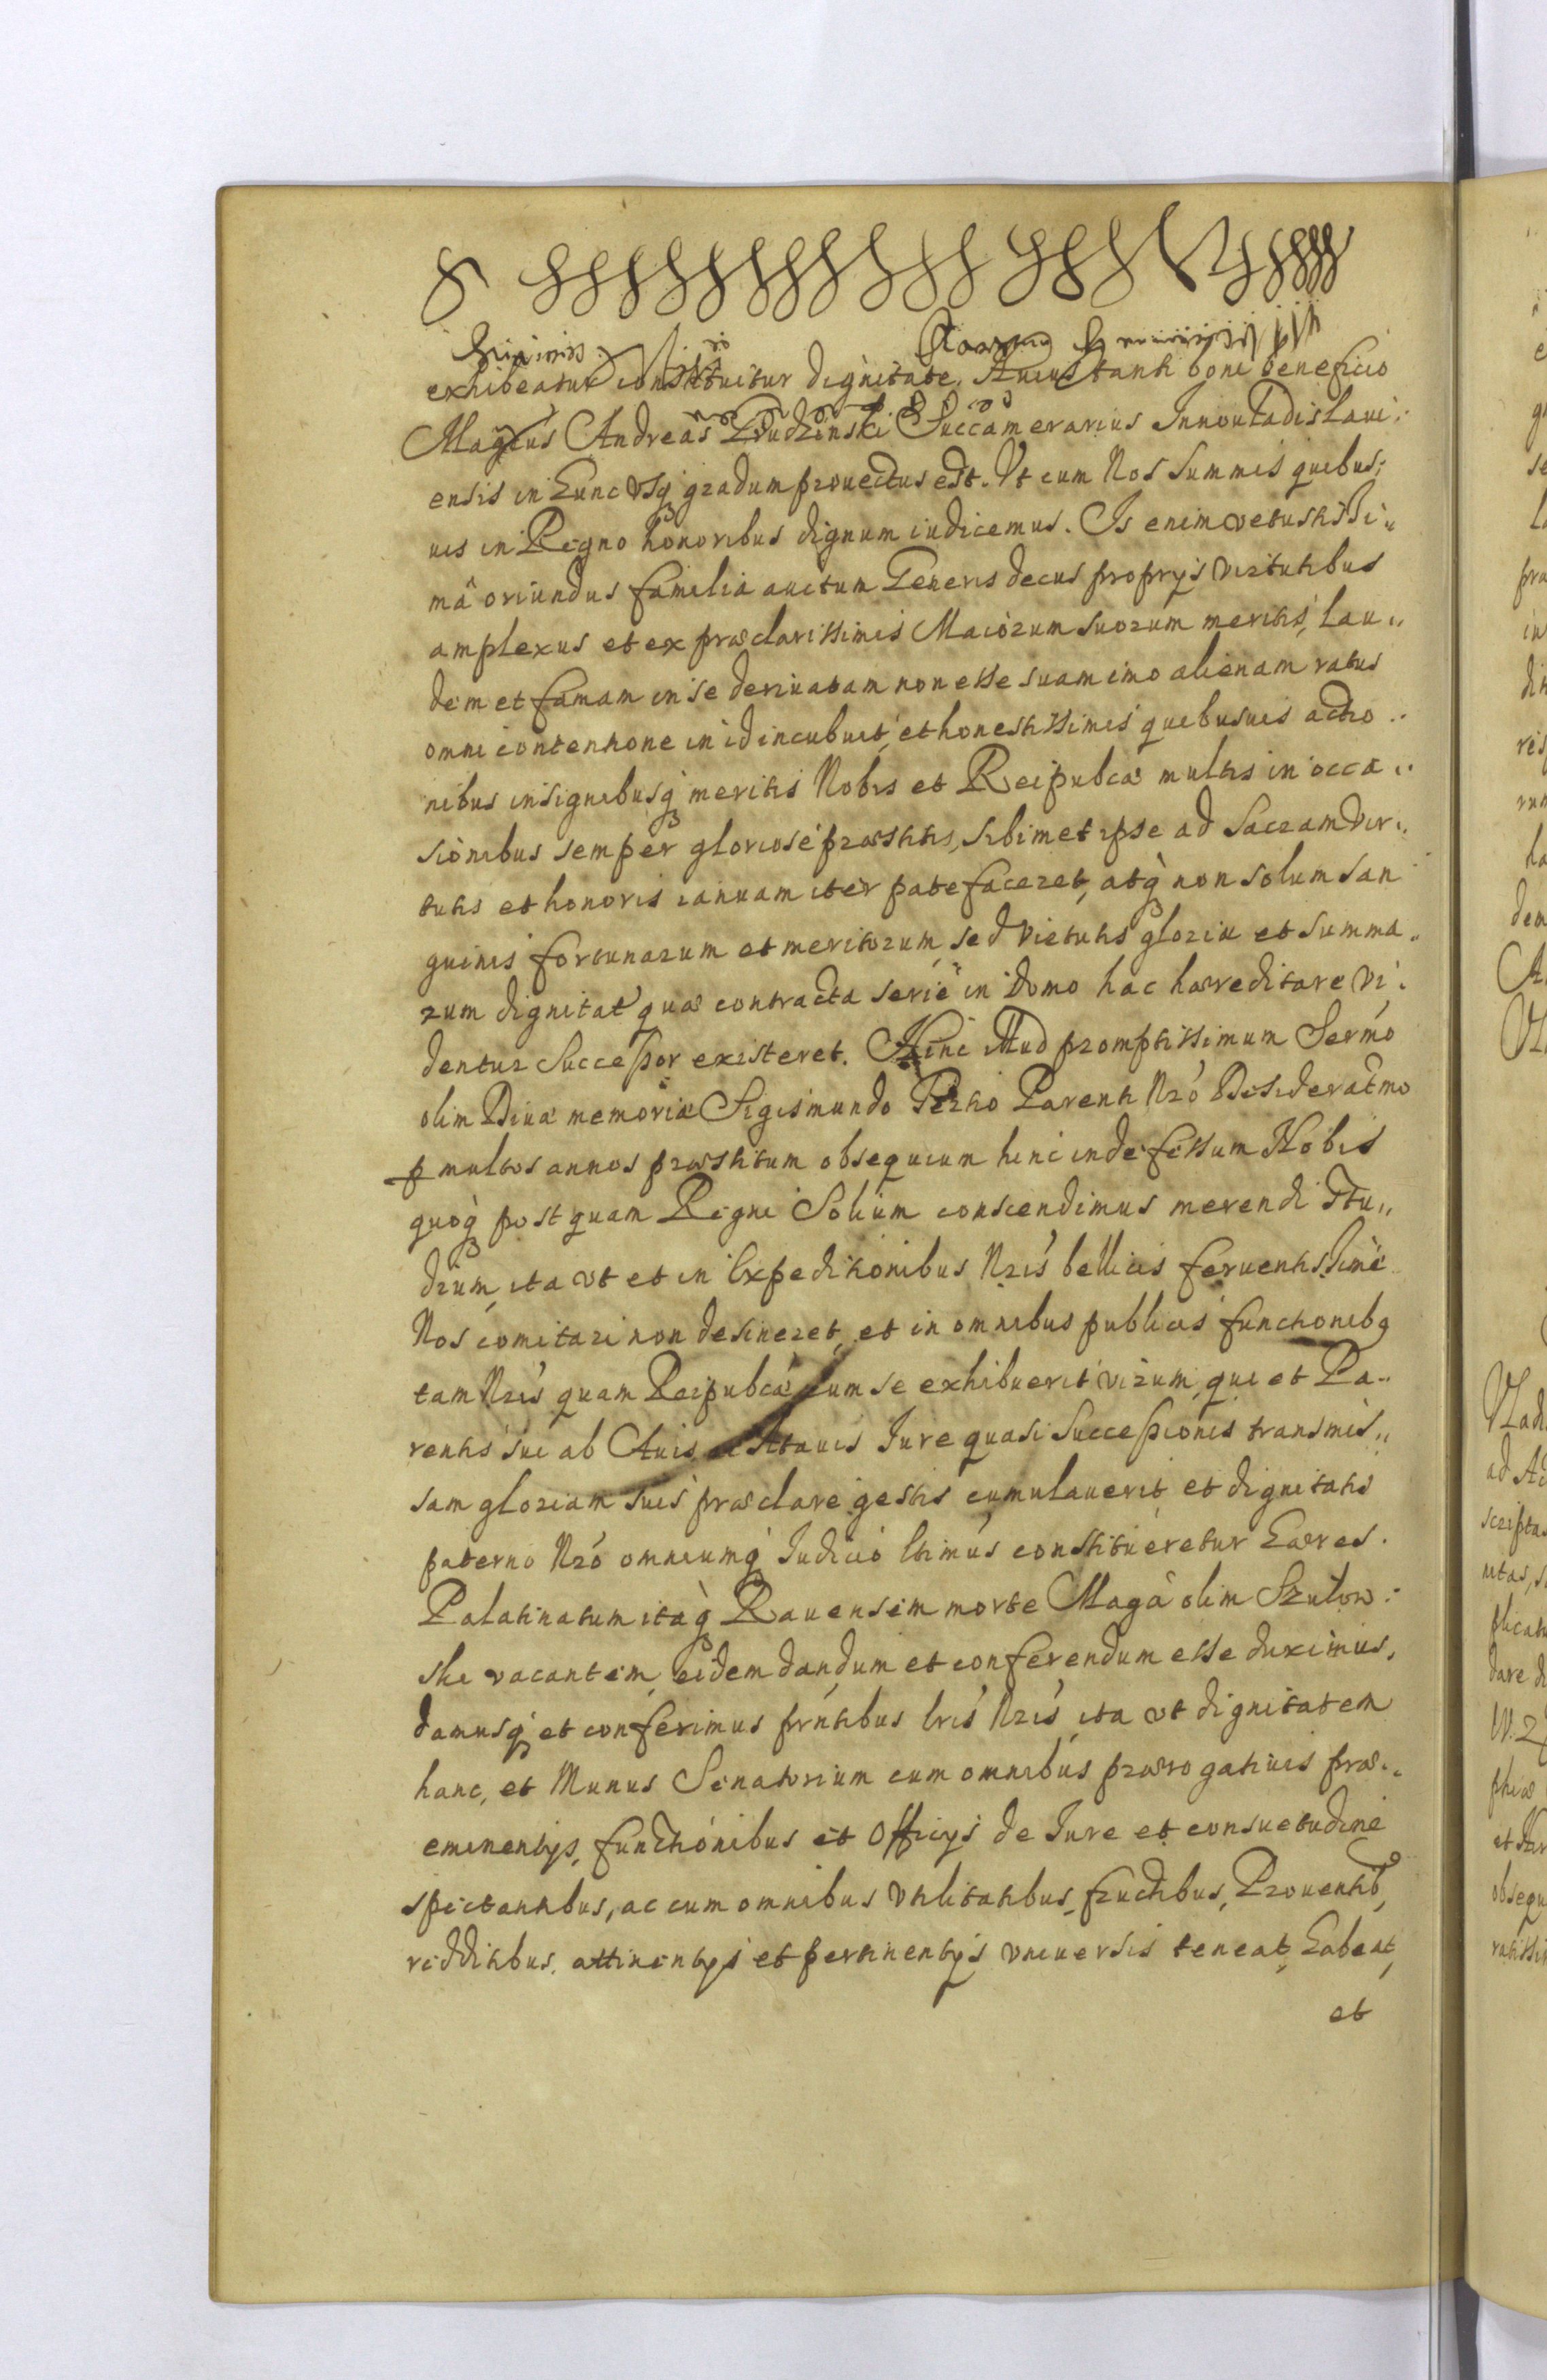 exhibeatur constituitur dignitate. Huius tanti boni beneficio
Magcus Andreas Grudzinski Succamerarius Innouladislaui:
ensis in hunc vsq gradum prouectus est. Vt eum Nos summis quibus:
uis in Regno honoribus dignum iudicemus. Is enim vetustissi„
mâ oriundus familia auctum Generis decus proprijs virtutibus
amplexus et ex præclarissimis Maiorum suorum meritis, lau„
dem et famam in se deriuatam non esse suam imo alienam ratus
omni contentione in id incubuit, et honestissimis quibusuis actio„
nibus insignibusq meritis Nobis et Reipubcæ multis in occa„
sionibus semper gloriosé præstitis, sibimet ipse ad Sacram vir„
tutis et honoris ianuam iter patefaceret, atq non solum san
guinis fortunarum et meritorum, sed vietutis gloriæ et summa„
rum dignitat quæ contracta serie in Domo hac hæreditare vi„
dentur Successor existeret. Hinc illud promptissimum Sermo
olim Diuæ memoriæ Sigismundo Tertio Parenti Nro Desideratmo
p multos annos præstitum obsequium hinc indefessum Nobis
quoq postquam Regni Solium conscendimus merendi stu„
dium, ita vt et in Expeditionibus Nris bellicis feruentissime
Nos comitari non desineret, et in omnibus publicis functionibq
tam Nris quam Reipubcæ eum se exhibuerit virum, qui et Pa„
rentis sui ab Auis et Atauis Iure quasi Successionis transmis„
sam gloriam suis præclare gestis cumulauerit et dignitatis
paterno Nro omniumq Iudicio ltimus constitueretur hæres.
Palatinatum itaq Rauensem morte Magci olim Szulow:
ski vacantem eidem dandum et conferendum esse duximus,
damusq et conferimus prntibus lris Nris, ita vt dignitatem
hanc, et Munus Senatorium cum omnibus prærogatiuis præ„
eminentijs, functionibus et Officijs de Iure et consuetudine
spectantibus, ac cum omnibus vtilitatibus, fructibus, Prouentib,
redditibus, attinentijs et pertinentijs vniuersis teneat, habeat,
et